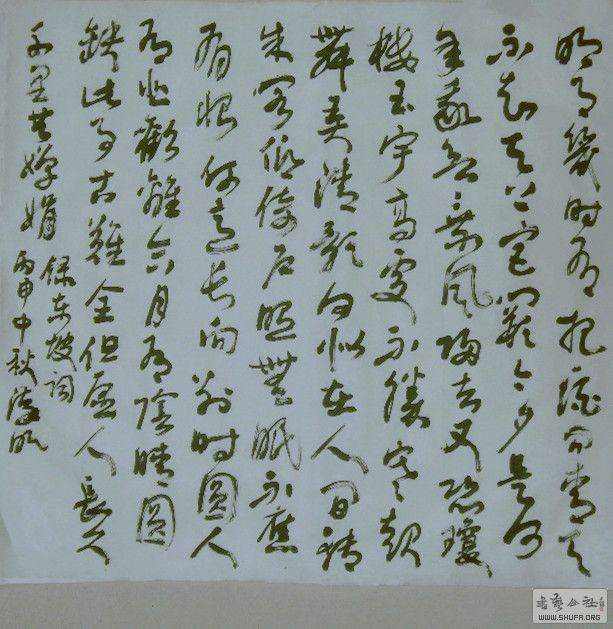 明月幾时有把酒问青天
不知天上宫阙今夕是何
年我欲乘风归去又恐瓊
楼玉宇高处不勝寒起
舞弄清影何似在人间转
朱阁低绮户照無眠不應
有恨何事长向别时圆人
有悲歡離合月有陰晴圓
缺此事古難全但愿人長久
千里共嬋娟
録东坡词
丙申中秋
書藝公社
WWW.SHUFA.ORG